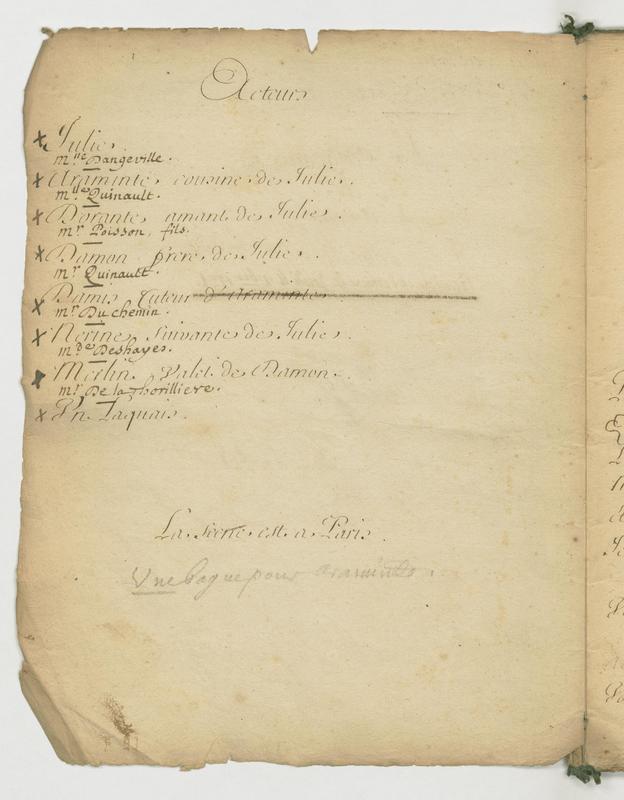 Acteurs
Julie.
mlle Dangeville.
Araminte, cousine de Julie.
mlle Quinault.
Dorante, amant de Julie.
mr Poisson, fils.
Damon frere de Julie.
mr Quinault.
Damis tuteur d'Araminte
mr Duchemin.
Nerine, suivante de Julie.
mde Deshayes.
Merlin, valet de Damon.
mr De la Thorilliere.
Un Laquais.
La scene est a Paris.
Une bague pour araminte.